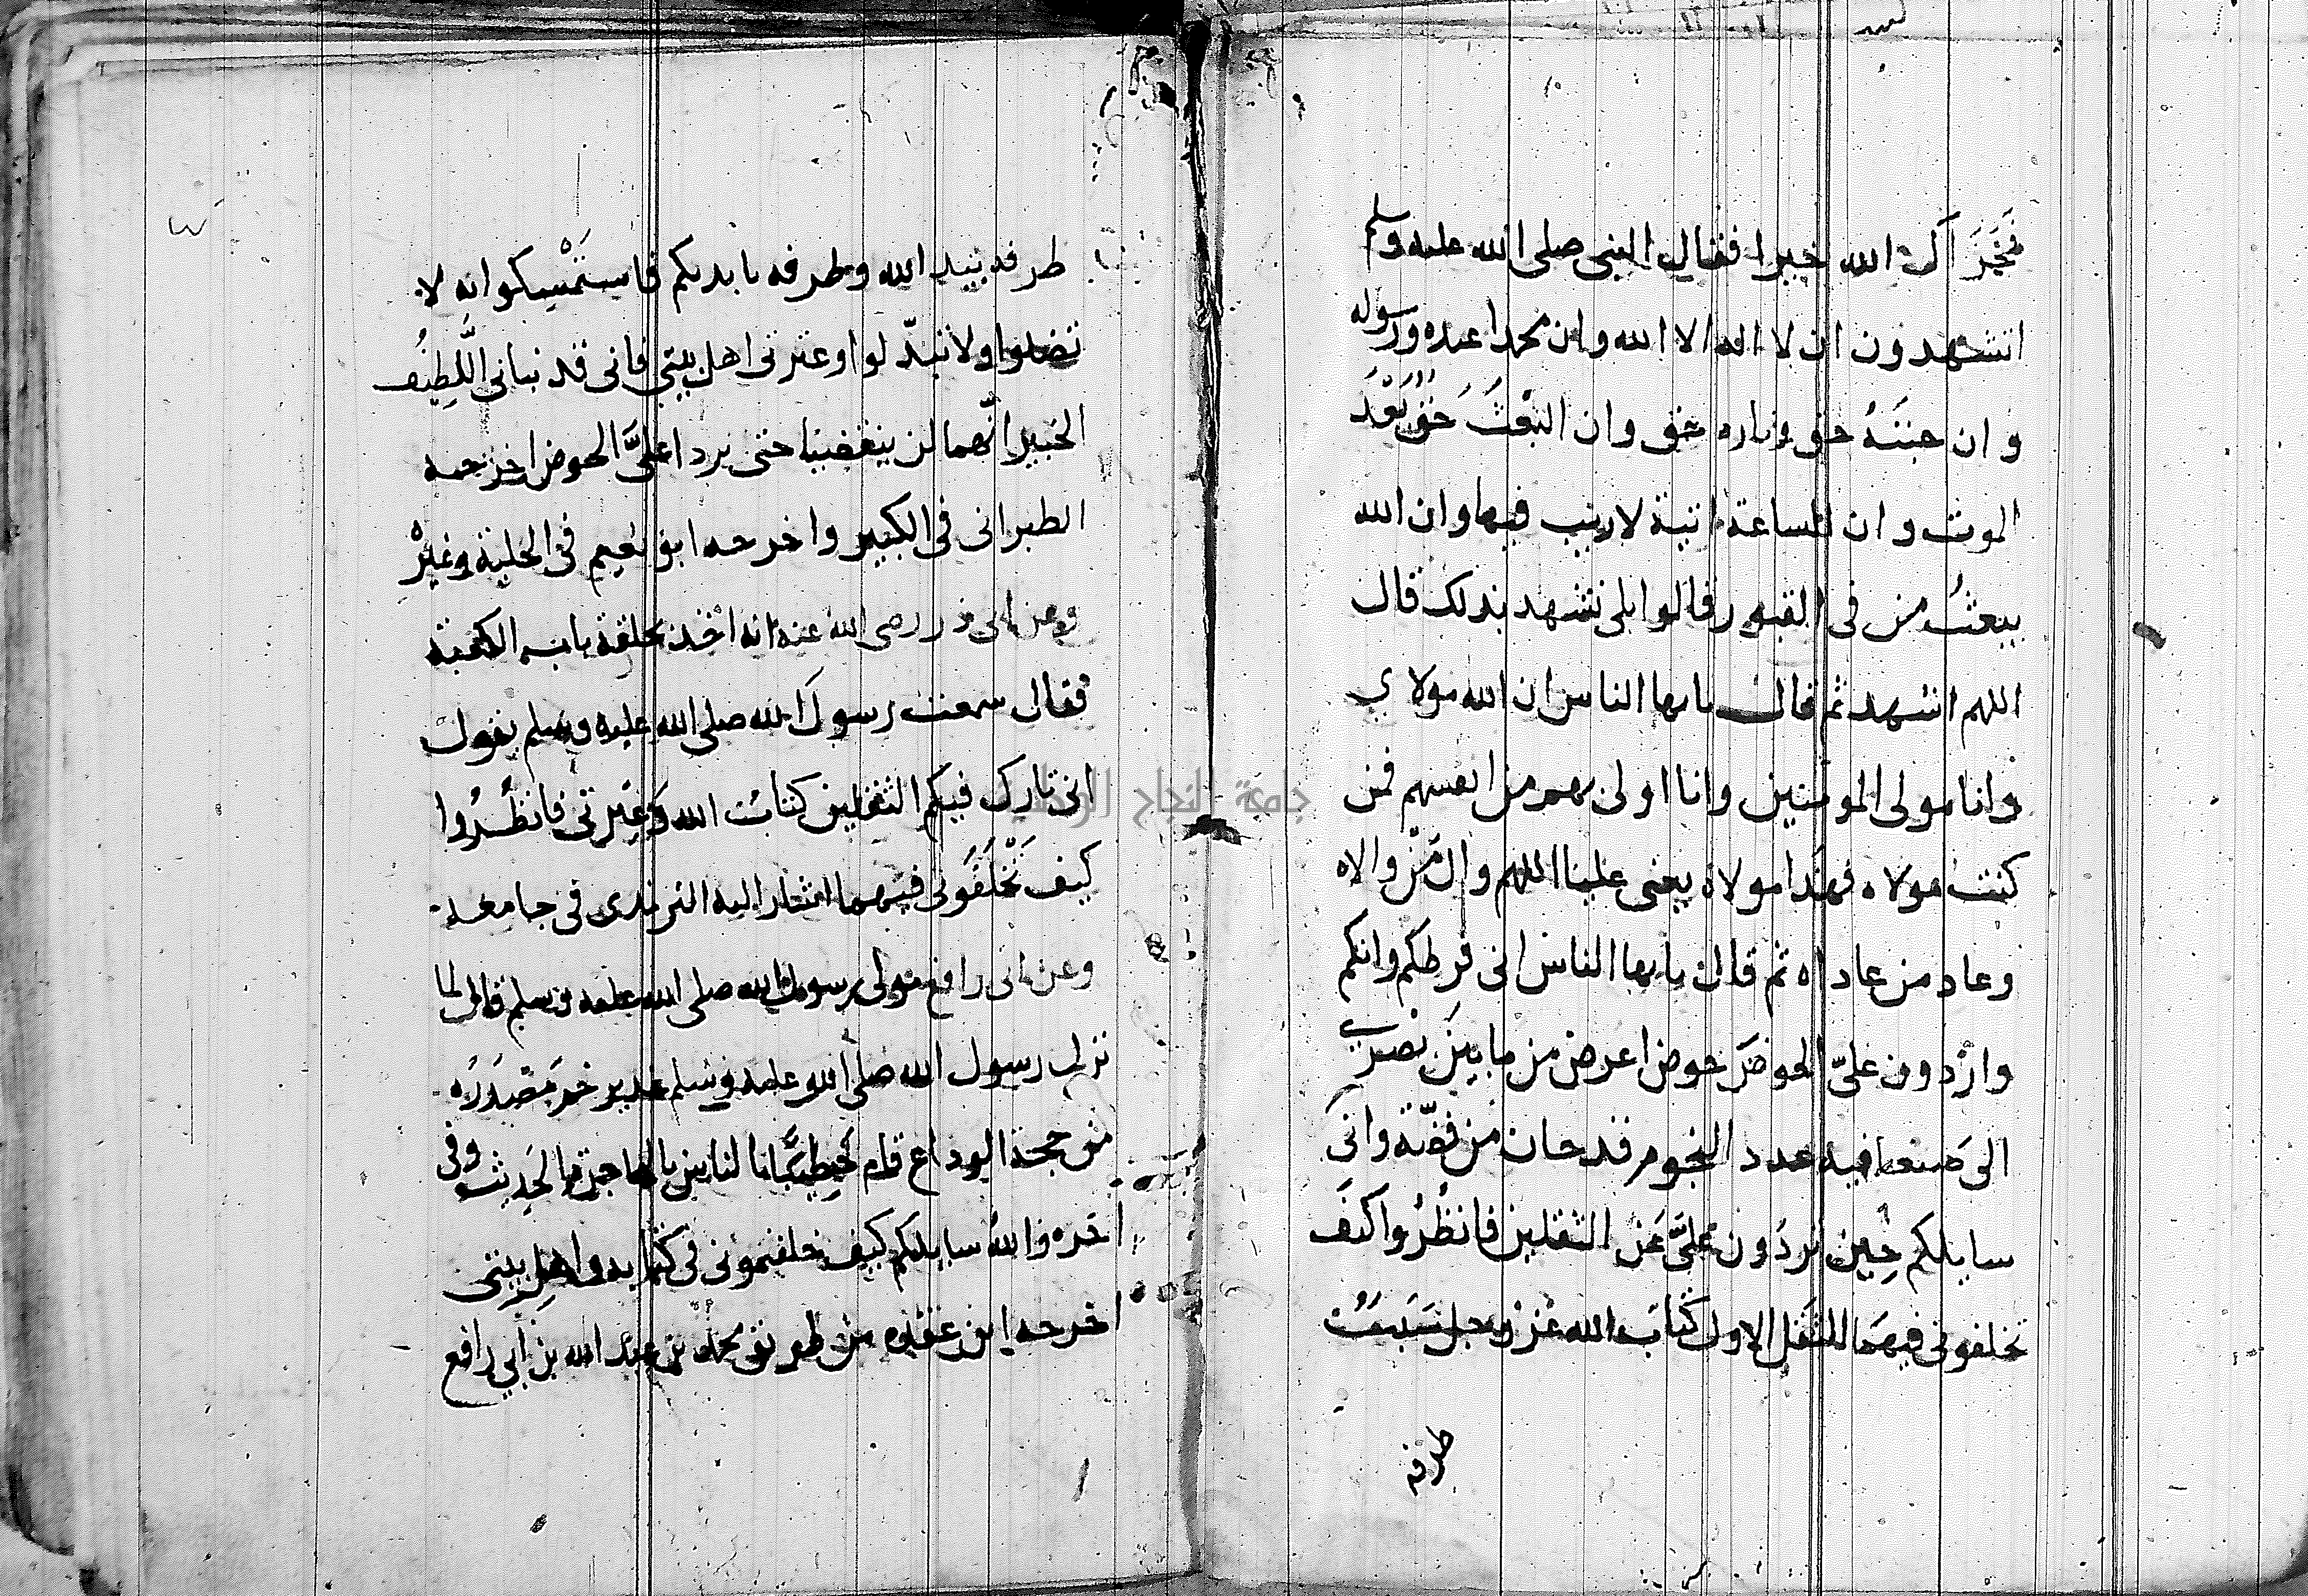 فجزاك الله خيرا فقال النبى صلى الله عليه وسلم
اتشهدون ان لا اله الا الله وان محمدا عبده ورسوله
وان جنته حق وناره حق وان البَعْثَ حَقٌّ بَعْدَ
الموت وان الساعة اتية لا ريب فيها وان الله
يبعثُ من فى القبور قالوا بلى نشهد بذلك قال
اللهم اشهد ثم قال يايها الناس ان الله مولاي
وانا مولى المومنين وانا اولى بهم من انفسهم فمن
كنت مولاه فهذا مولاه يعنى عليا اللهم وال مَنْ والاه
وعاد من عاداه ثم قال يايها الناس انى فرطكم وانكم
واردون علىّ الحوضَ حوض اعرض من ما بينَ بصرى
الى صنعا فيه عدد النجوم قدحان من فضّة وانى
سايلكم حين تردُون علىَّ عَن الثقلين فانظُرُوا كيفَ
تخلفونى فيهما الثقل الاول كتاب الله عز وجل سَبَبٌ
طرفه
طرفه بيد الله وطرفه بايديكم فاستَمْسِكوا به لا
تضلوا ولا تبدّلوا وعترتى اهل بيتى فانى قد نبانى اللَّطِيْفُ
الخبير انّهما لن ينقضيا حتى يردا علىَّ الحوض اخرجه
الطبرانى فى الكبير واخرجه ابو نعيم فى الحلية وغيرُ
وعن ابى ذر رضى الله عنه انه اخذ بحلقة باب الكعبة
فقال سمعت رسولَ الله صلى الله عليه وسلم يقول
انى تارك فيكم الثقلين كتابَ الله وعترتى فانظُرُوا
كيف تَخْلُفُونى فيهما اشار اليه الترمذى فى جامعه
وعن ابى رافع مولى رسول الله صلى الله عليه وسلم قال لما
نزل رسول الله صلى الله عليه وسلم غدير خم مَصْدَرَه
من حجة الوداع قام خطيبًا بالناس بالهاجرة الحديث وفى
اخره والله سايلكم كيف خلفتمونى فى كتابه واهل بيتى
اخرجه ابن عقده من طريق محمد بن عبد الله بن ابي رافع
جامعة النجاح الوطنية